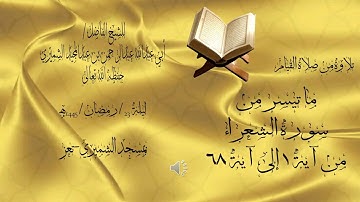 تلاوة من صلاة القيام
ما تيسر من
سورة الشعراء
من آية ١ إلى آية ٦٨
للشيخ الفاضل /
أبي عبدالله عبدالرحمن بن عبدالمجيد الشميري
حفظه الله تعالى
ليلة / رمضان / 1445هـ
بمسجد الشميري - تعز